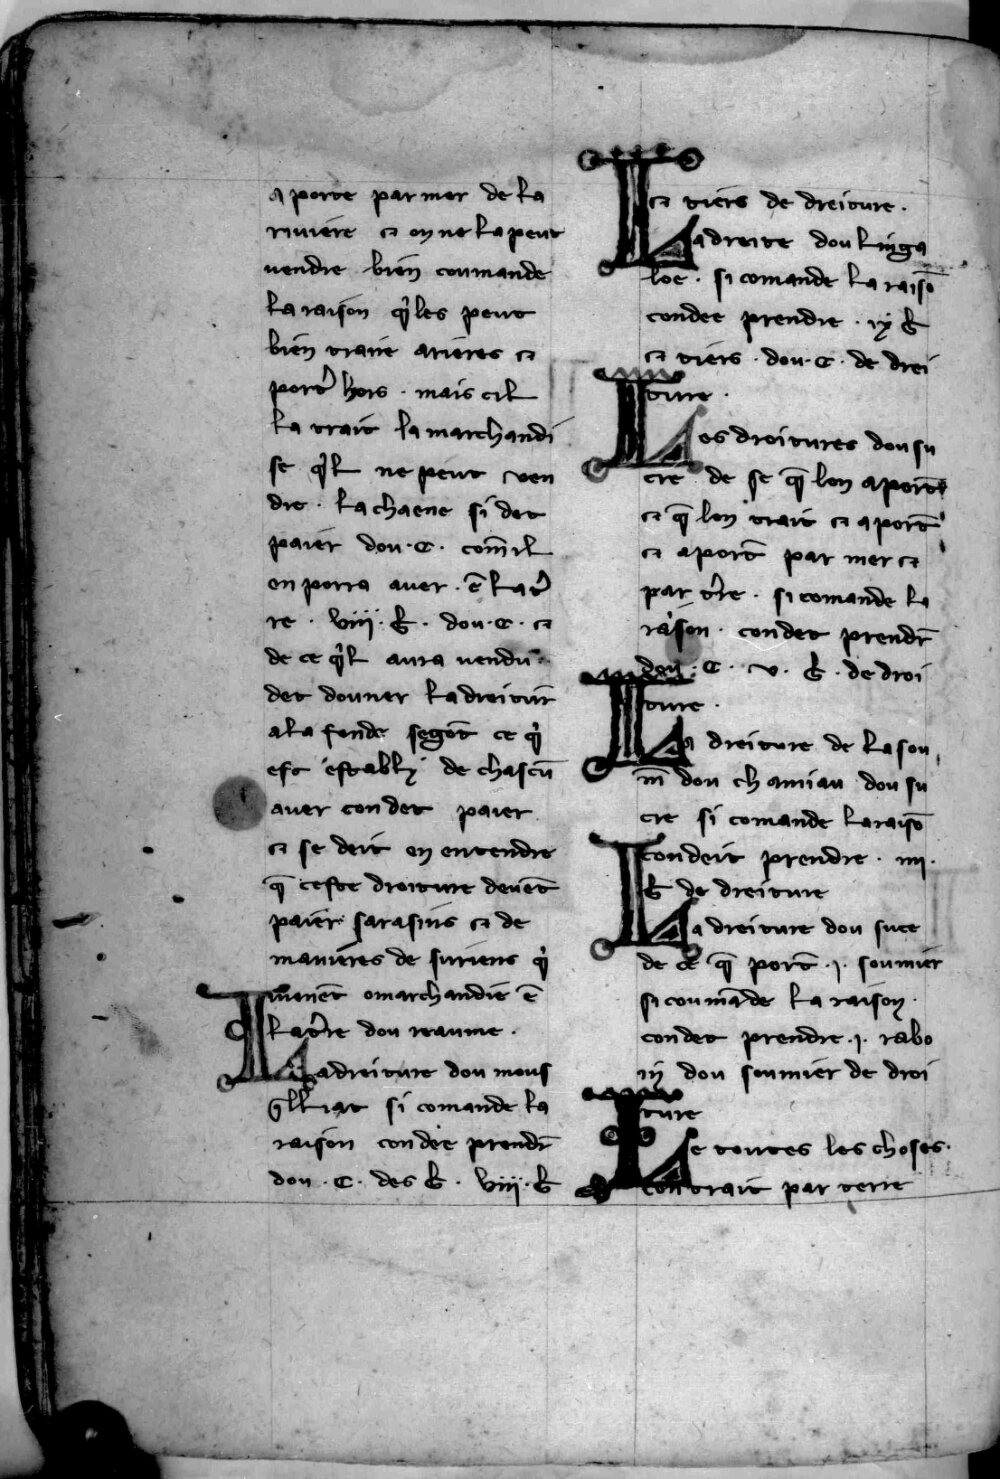 aporte par mer de la
riviere et on ne la peut
vendre bien coumande
la raison q'les peut
bien traire arieres et
port' hors . mais cil
ka trait la marchandi
se q'l ne peut ven
dre . La chaene si det
paier dou .C. com̄ il
en porra aver . ē la t'
re . viii . k̶ . dou .C. et
de ce q'l aura vendu .
det douner la dreitur̄
a la fonde segōt ce q'
est establi de chascū
aver con det paier
et se deit en entendre
q̄ ceste droiture devēt
paier sarasins et de
manieres de suriens q'
menēt o marchandie ē
la t're dou reaume .
La dreiture dou mous
sill'iat si comande la
raison con dee prendr̄
dou .C. des k̶ . viii . k̶
et tiers de dreiture .
La dreite dou linga
loe . si comande la raisō
con dee prendre . ix k̶
et tiers . dou .C. de drei
ture .
Les droitures dou su
cre de se q̄ lon aport̄
et q̄ lon trait et aport̄
et aport̄ par mer et
par t're . si comande la
raison . con det prendr̄
dou .C. v . k̶ . de droi
ture .
La dreiture de la sou
m̄ dou chamiau dou su
cre si comande la raisō
con deit prendre . iiii .
k̶ de dreiture
La dreiture dou sucre
de ce q̄ port̄ .i. soumier
si coumāde la raison .
con det prendre .i. rabo
in dou soumier de droi
ture
De toutes les choses .
con trait par terre